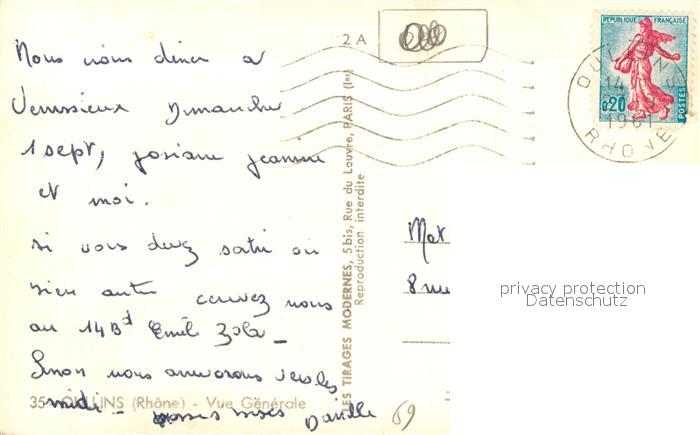 Nous irons diner a
Venissieux Dimanche
1 sept, josiane jeanine
et moi.
si vous devez satir ou
rien autre ecrivez nous
au 14 Bd Emile Zola -
Sinon nous arriverons vers les
midi - grosses bises Danielle
35 - OULLINS (Rhône) - Vue Générale
69
LES TIRAGES MODERNES, 5 bis, Rue du Louvre, PARIS (Ier)
Reproduction interdite
2 A
RÉPUBLIQUE FRANÇAISE
0,20
POSTES
OULLINS
14
1961
RHONE
8 rue
privacy protection
Datenschutz